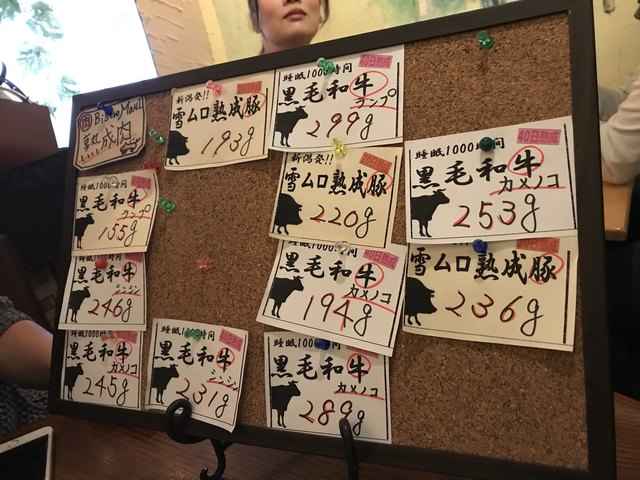 肉 Bistro Mani
熟成肉
新潟発!!
雪ムロ熟成豚
193g
睡眠1000時間
40日熟成
黒毛和牛
ランプ
299g
睡眠1000時間
40日熟成
黒毛和牛
カメノコ
253g
新潟発!!
雪ムロ熟成豚
220g
睡眠1000時間
黒毛和牛
ランプ
155g
雪ムロ熟成豚
236g
睡眠1000時間
40日熟成
黒毛和牛
カメノコ
194g
睡眠1000時間
黒毛和牛
シンシン
246g
睡眠1000時間
黒毛和牛
カメノコ
245g
睡眠1000時間
黒毛和牛
シンシン
231g
睡眠1000時間
黒毛和牛
カメノコ
289g